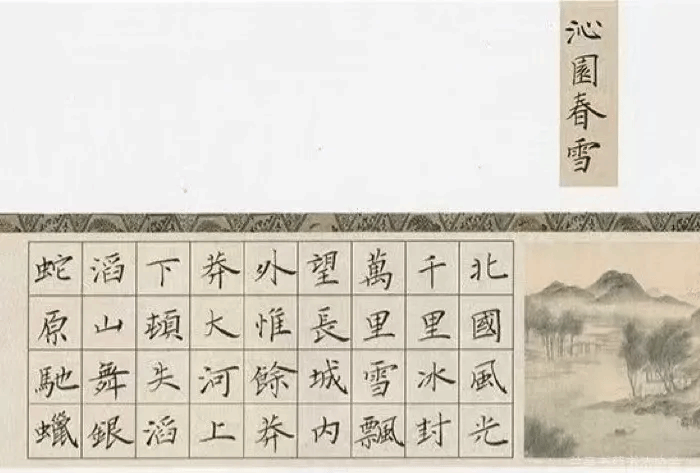 沁園春雪
北國風光
千里冰封
萬里雪飄
望長城内
外惟餘莽
莽大河上
下頓失滔
滔山舞銀
蛇原馳蠟